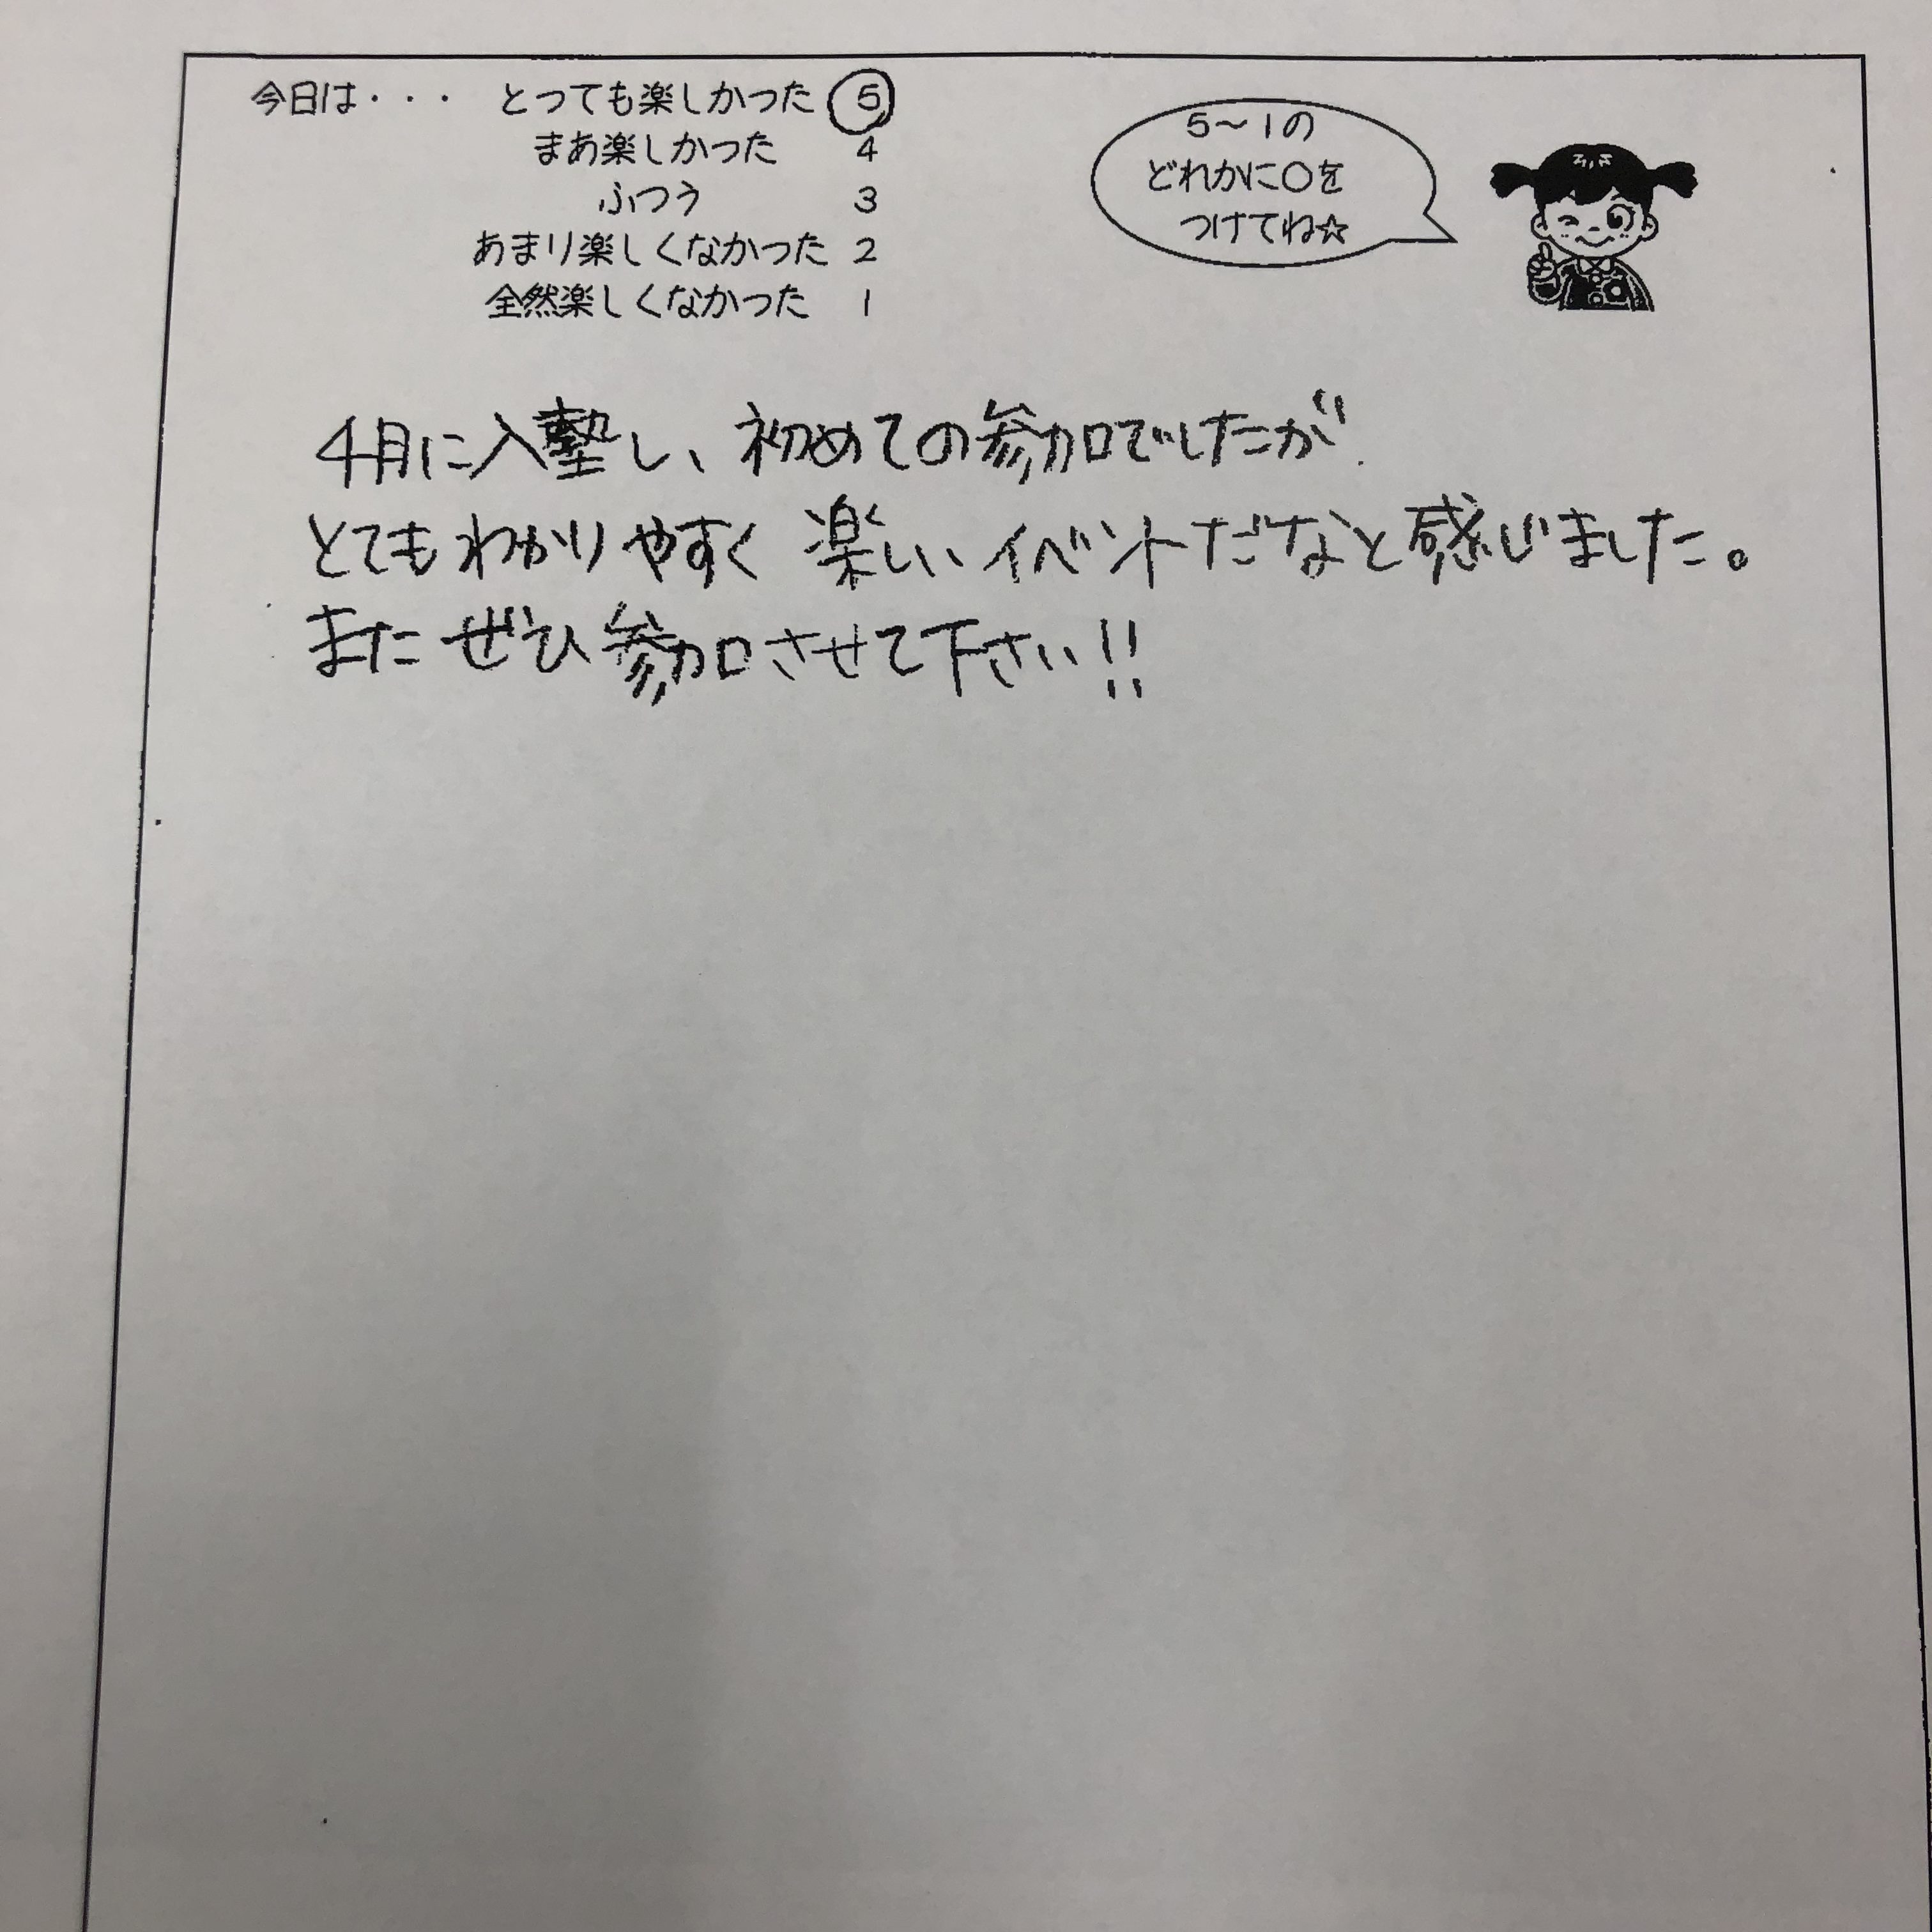 今日は・・・ とっても楽しかった 5
まあ楽しかった 4
ふつう 3
あまり楽しくなかった 2
全然楽しくなかった 1
5〜1の
どれかに○を
つけてね☆
4月に入塾し、初めての参加でしたが
とてもわかりやすく 楽しいイベントだなと感じました。
またぜひ参加させて下さい!!